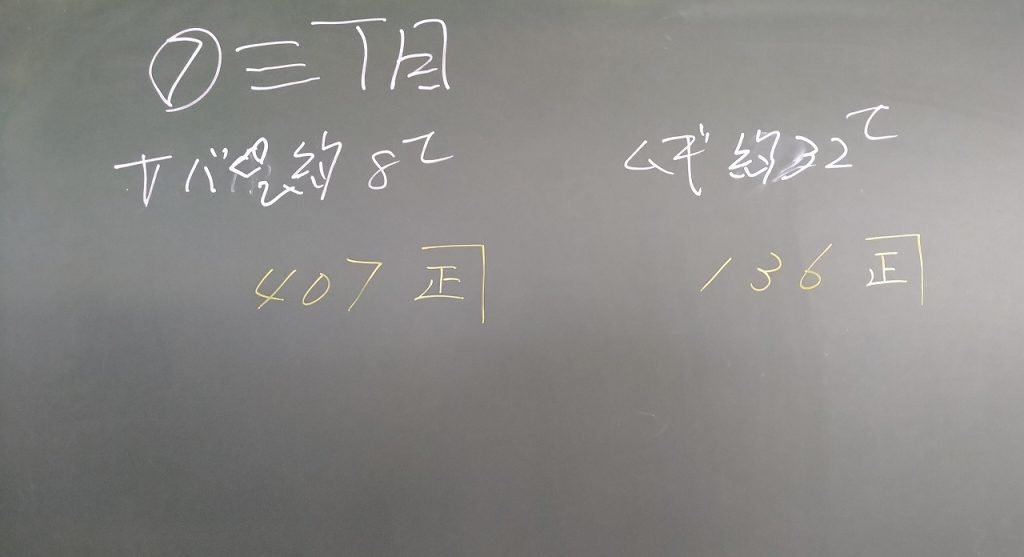 ⑦三丁目
サバ混約8t ムギ約32t
407 正 136 正